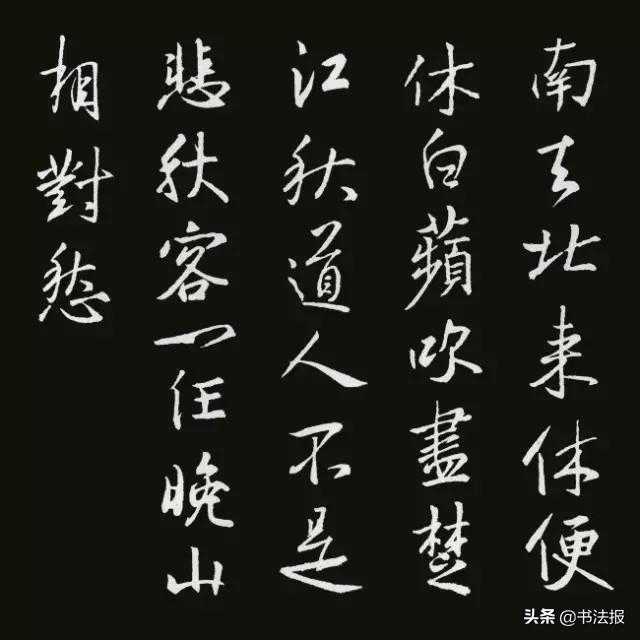 南去北来休便
休白蘋吹盡楚
江秋道人不是
悲秋客一任晚山
相對愁
头条 @书法报